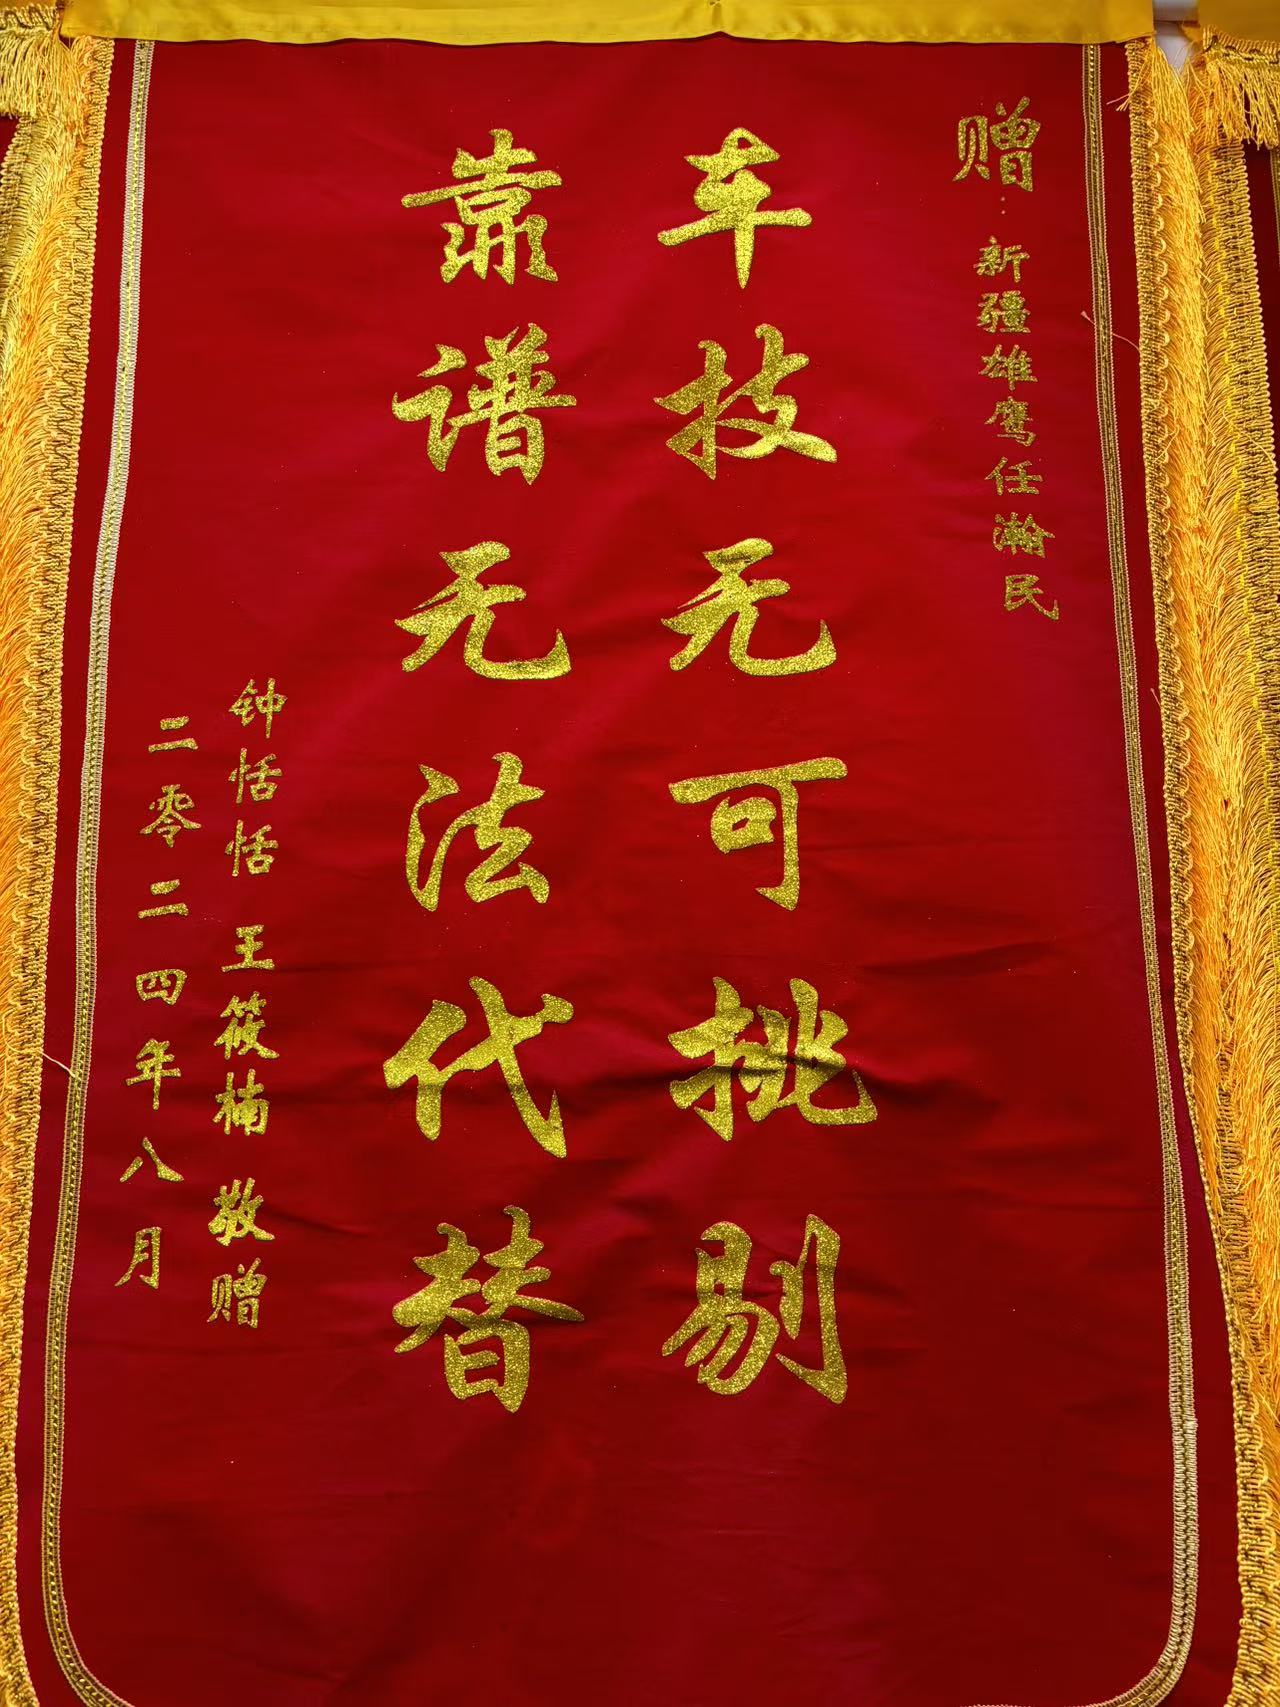 赠：新疆雄鹰任瀚民
车技无可挑剔
靠谱无法代替
钟恬恬 王筱楠 敬赠
二零二四年八月